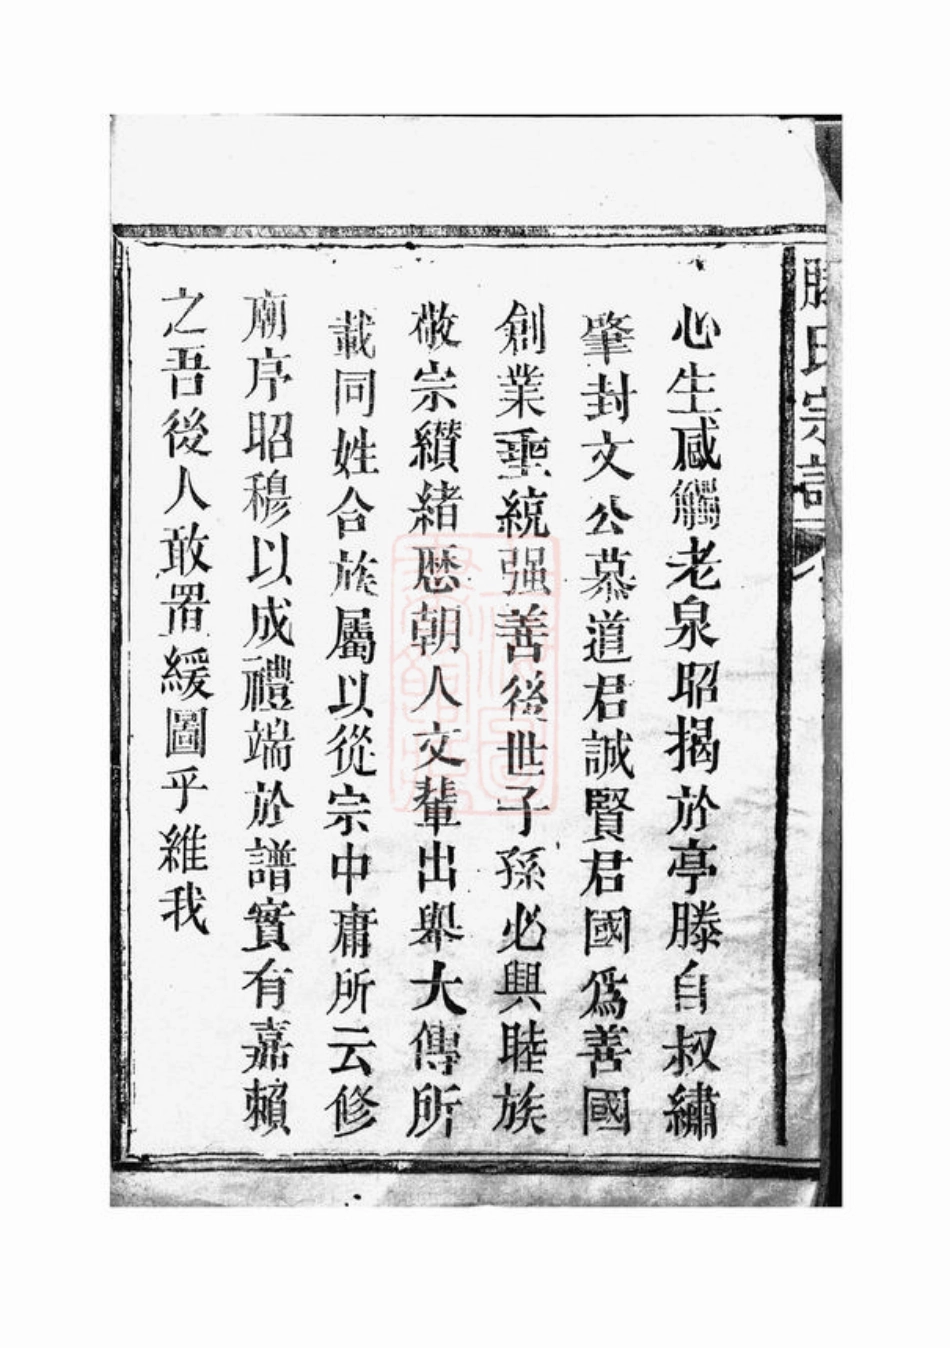 滕氏宗譜
心生感觸老泉昭揭於亭滕自叔繡
肇封文公慕道君誠賢君國爲善國
創業垂統强善後世子孫必興睦族
敬宗纘緒歷朝人文輩出舉大傳所
載同姓合族屬以從宗中庸所云修
廟序昭穆以成禮端於譜實有嘉賴
之吾後人敢置緩圖乎維我